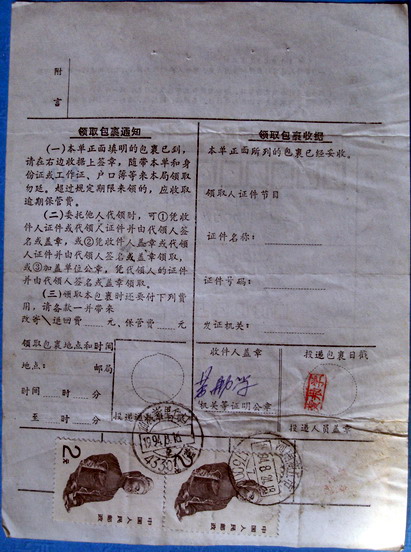 附
言
领取包裹通知
(一)本单正面填明的包裹已到,
请在右边收据上签章,随带本单和身
份证或工作证、户口簿等来本局领取
勿延。超过规定期限来领的,应收取
逾期保管费。
(二)委托他人代领时,可①凭收
件人证件或代领人证件并由代领人签
名或盖章,或②凭收件人盖章或代领
人证件并由代领人签名或盖章领取,
或③加盖单位公章,凭代领人的证件
并由代领人签名或盖章领取。
(三)领取本包裹时还要付下列费
用,请备款一并带来
改寄╲退回费 元、保管费 元
领取包裹地点和时间
地点: 邮局
时间 时 分
至 时 分
投递通知单日戳
领取包裹收据
本单正面所列的包裹已经妥收。
领取人证件节目
证件名称:
证件号码:
发证机关:
收件人盖章
机关等证明公章
投递包裹日戳
投递人员盖章
2元
中国人民邮政
2
中国人民邮政